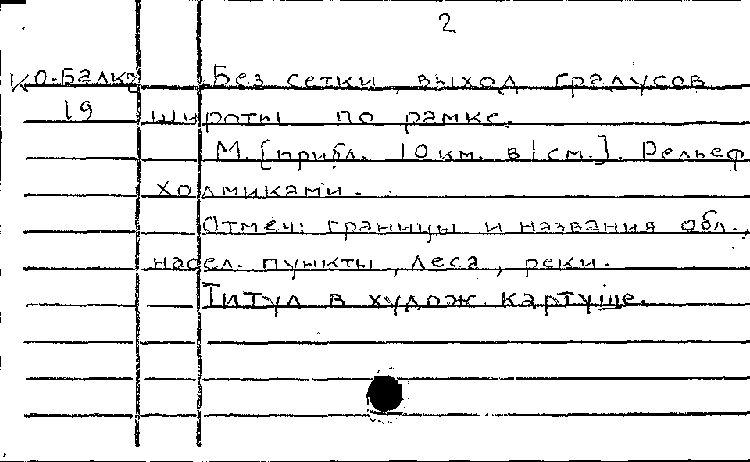 2
Ко-Балк. Без сетки, выход градусов
19 широты по рамке.
М. [прибл. 10 км. в 1 см.]. Рельеф
холмиками.
Отмеч: границы и названия обл.,
насел. пункты, леса, реки.
Титул в худож. картуше.